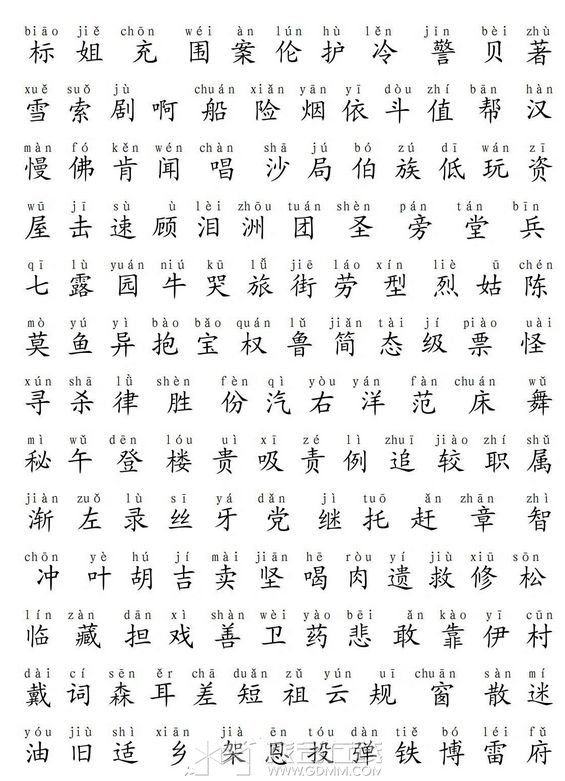 biāo jiě chōn wéi àn lún hù lěn jǐn bèi zhù
标 姐 充 围 案 伦 护 冷 警 贝 著
xuě suǒ jù chuán xiǎn yān yī dòu zhí bān hàn
雪 索 剧 啊 船 险 烟 依 斗 值 帮 汉
màn fó kěn wén chàn shā jú bó zú dī wán zī
慢 佛 肯 闻 唱 沙 局 伯 族 低 玩 资
wū jī sù ù lèi zhōu tuán shèn pán tán bīn
屋 击 速 顾 泪 洲 团 圣 旁 堂 兵
qī lù yuán niú kū lǚ jiē láo xín liè ū chén
七 露 园 牛 哭 旅 街 劳 型 烈 姑 陈
mò yú yì bào bǎo quán lǔ jiǎn tài jí piào uài
莫 鱼 异 抱 宝 权 鲁 简 态 级 票 怪
xún shā lǜ shèn fèn qì yòu yán fàn chuán wǔ
寻 杀 律 胜 份 汽 右 洋 范 床 舞
mì wǔ dēn lóu uì xī zé lì zhuī jiào zhí shǔ
秘 午 登 楼 贵 吸 责 例 追 较 职 属
jiàn zuǒ lù sī yá dǎn jì tuō ǎn zhān zhì
渐 左 录 丝 牙 党 继 托 赶 章 智
chōn yè hú jí mài jiān hē ròu yí jiù xiū sōn
冲 叶 胡 吉 卖 坚 喝 肉 遗 救 修 松
lín zàn dān xì shàn wèi yào bēi ǎn kào yī cūn
临 藏 担 戏 善 卫 药 悲 敢 靠 伊 村
dài cí sēn ěr chā duǎn zǔ yún uī chuān sàn mí
戴 词 森 耳 差 短 祖 云 规 窗 散 迷
yóu jiù shì xiān jià ēn tóu dàn tiě bó léi fǔ
油 旧 适 乡 架 恩 投 弹 铁 博 雷 府
WWW.GDMM.COM